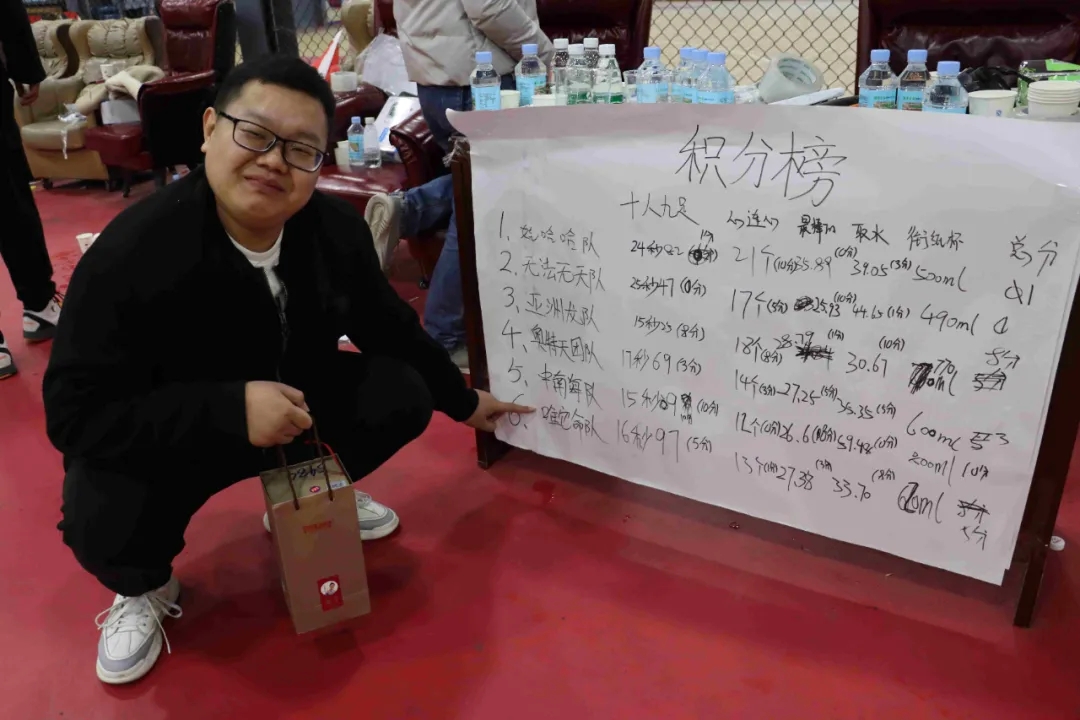 积分榜
十人九足 取水 衔纸杯 总分
1、娃哈哈队 24秒82 21个(10分) 35.89(0分) 39.05(3分) 500ml
2、无法无天队 25秒47(0分) 17个(5分) 25.93(10分) 44.65(1分) 490ml
3、亚洲龙队 15秒23(8分) 18个(8分) 28.79(1分) 30.67(10分) 770ml 8分
4、奥特天团队 17秒69(3分) 14个(3分) 27.25(5分) 35.35(3分) 600ml
5、中南海队 15秒09(10分) 12个(0分) 26.6(8分) 59.48(0分) 800ml 10分
6、唯它命队 16秒97(5分) 13个(1分) 27.38(3分) 33.70(8分) 5分